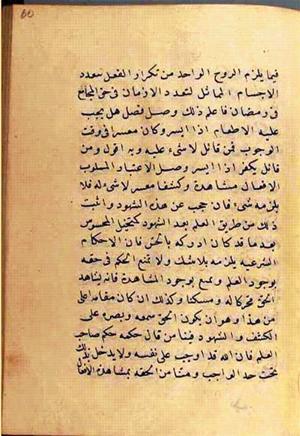 فيما يلزم الروح الواحد من تكرار الفعل بتعدد
الاجسام المماثل لتعدد الازمان في حق المجامع
في رمضان فاعلم ذلك وصل فصل هل يجب
عليه الاطعام اذا ايسر وكان معسرا في وقت
الوجوب فمن قائل لا شيء عليه وبه اقول ومن
قائل يكفر اذا ايسر وصل الاعتبار المسلوب
الافعال مشاهدة وكشفا معسر لا شيء له فلا
يلزمه شيء فان حجب عن هذا الشهود واثبت
ذلك من طريق العلم بعد الشهود كتخيل المحسوس
بعد ما قد كان ادركه بالحس فان الاحكام
الشرعية يلزمه بلا شك ولا تمنع الحكم في حقه
بوجود العلم ويمنع بوجود المشاهدة فانه يشاهد
الحق محركا له ومسكنا وكذلك ان كان مقامه اعلى
من هذا وهو ان يكون الحق سمعه وبصره على
الكشف والشهود فمنا من قال حكمه حكم صاحب
العلم فان الله قد اوجب على نفسه ولا يدخل بذلك
تحت حد الواجب ومنا من الحقه بمشاهدة الافعال